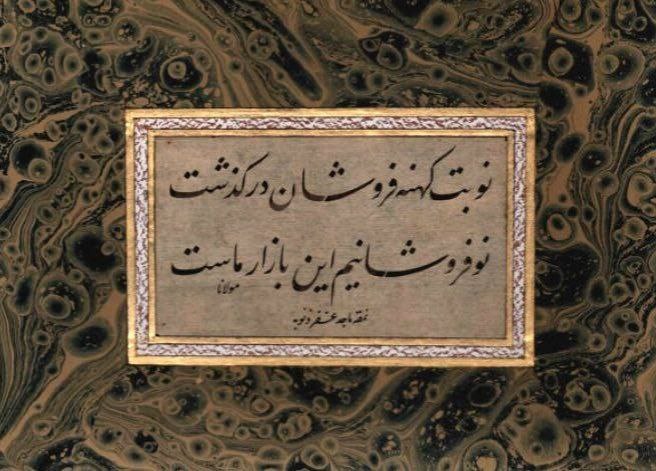 نوبت کهنه فروشان درگذشت
نو فروشانیم این بازار ماست
مولانا
نمقه ماجد غفر ذنوبه